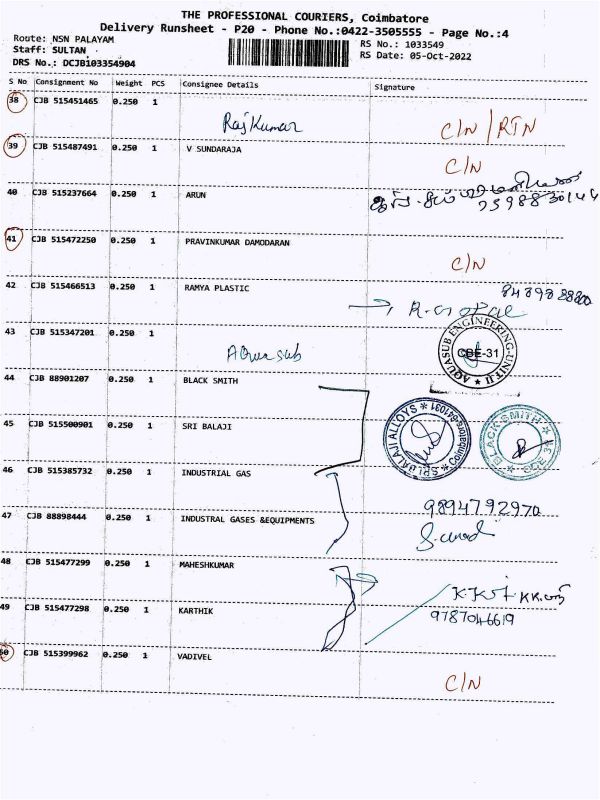 THE PROFESSIONAL COURIERS, Coimbatore
Delivery Runsheet - P20 - Phone No.:0422-3505555 - Page No.:4
Route: NSN PALAYAM
RS No.: 1033549
Staff: SULTAN
RS Date: 05-Oct-2022
DRS No.: DCJB103354904
S No Consignment No Weight PCS Consignee Details Signature
38 CJB 515451465 0.250 1
Rajkumar C/N / RTN
39 CJB 515487491 0.250 1 V SUNDARAJA
C/N
40 CJB 515237664 0.250 1 ARUN
41 CJB 515472250 0.250 1 PRAVINKUMAR DAMODARAN
C/N
42 CJB 515466513 0.250 1 RAMYA PLASTIC
R. Gopal
43 CJB 515347201 0.250 1
Aquasub
AQUASUB ENGINEERING-UNIT-II
CBE-31
44 CJB 88901207 0.250 1 BLACK SMITH
45 CJB 515500901 0.250 1 SRI BALAJI
SRI BALAJI ALLOYS * Coimbatore-641031 *
BLACKSMITH
46 CJB 515385732 0.250 1 INDUSTRIAL GAS
9894792970
47 CJB 88898444 0.250 1 INDUSTRAL GASES &EQUIPMENTS
48 CJB 515477299 0.250 1 MAHESHKUMAR
49 CJB 515477298 0.250 1 KARTHIK
9787046619
50 CJB 515399962 0.250 1 VADIVEL
C/N